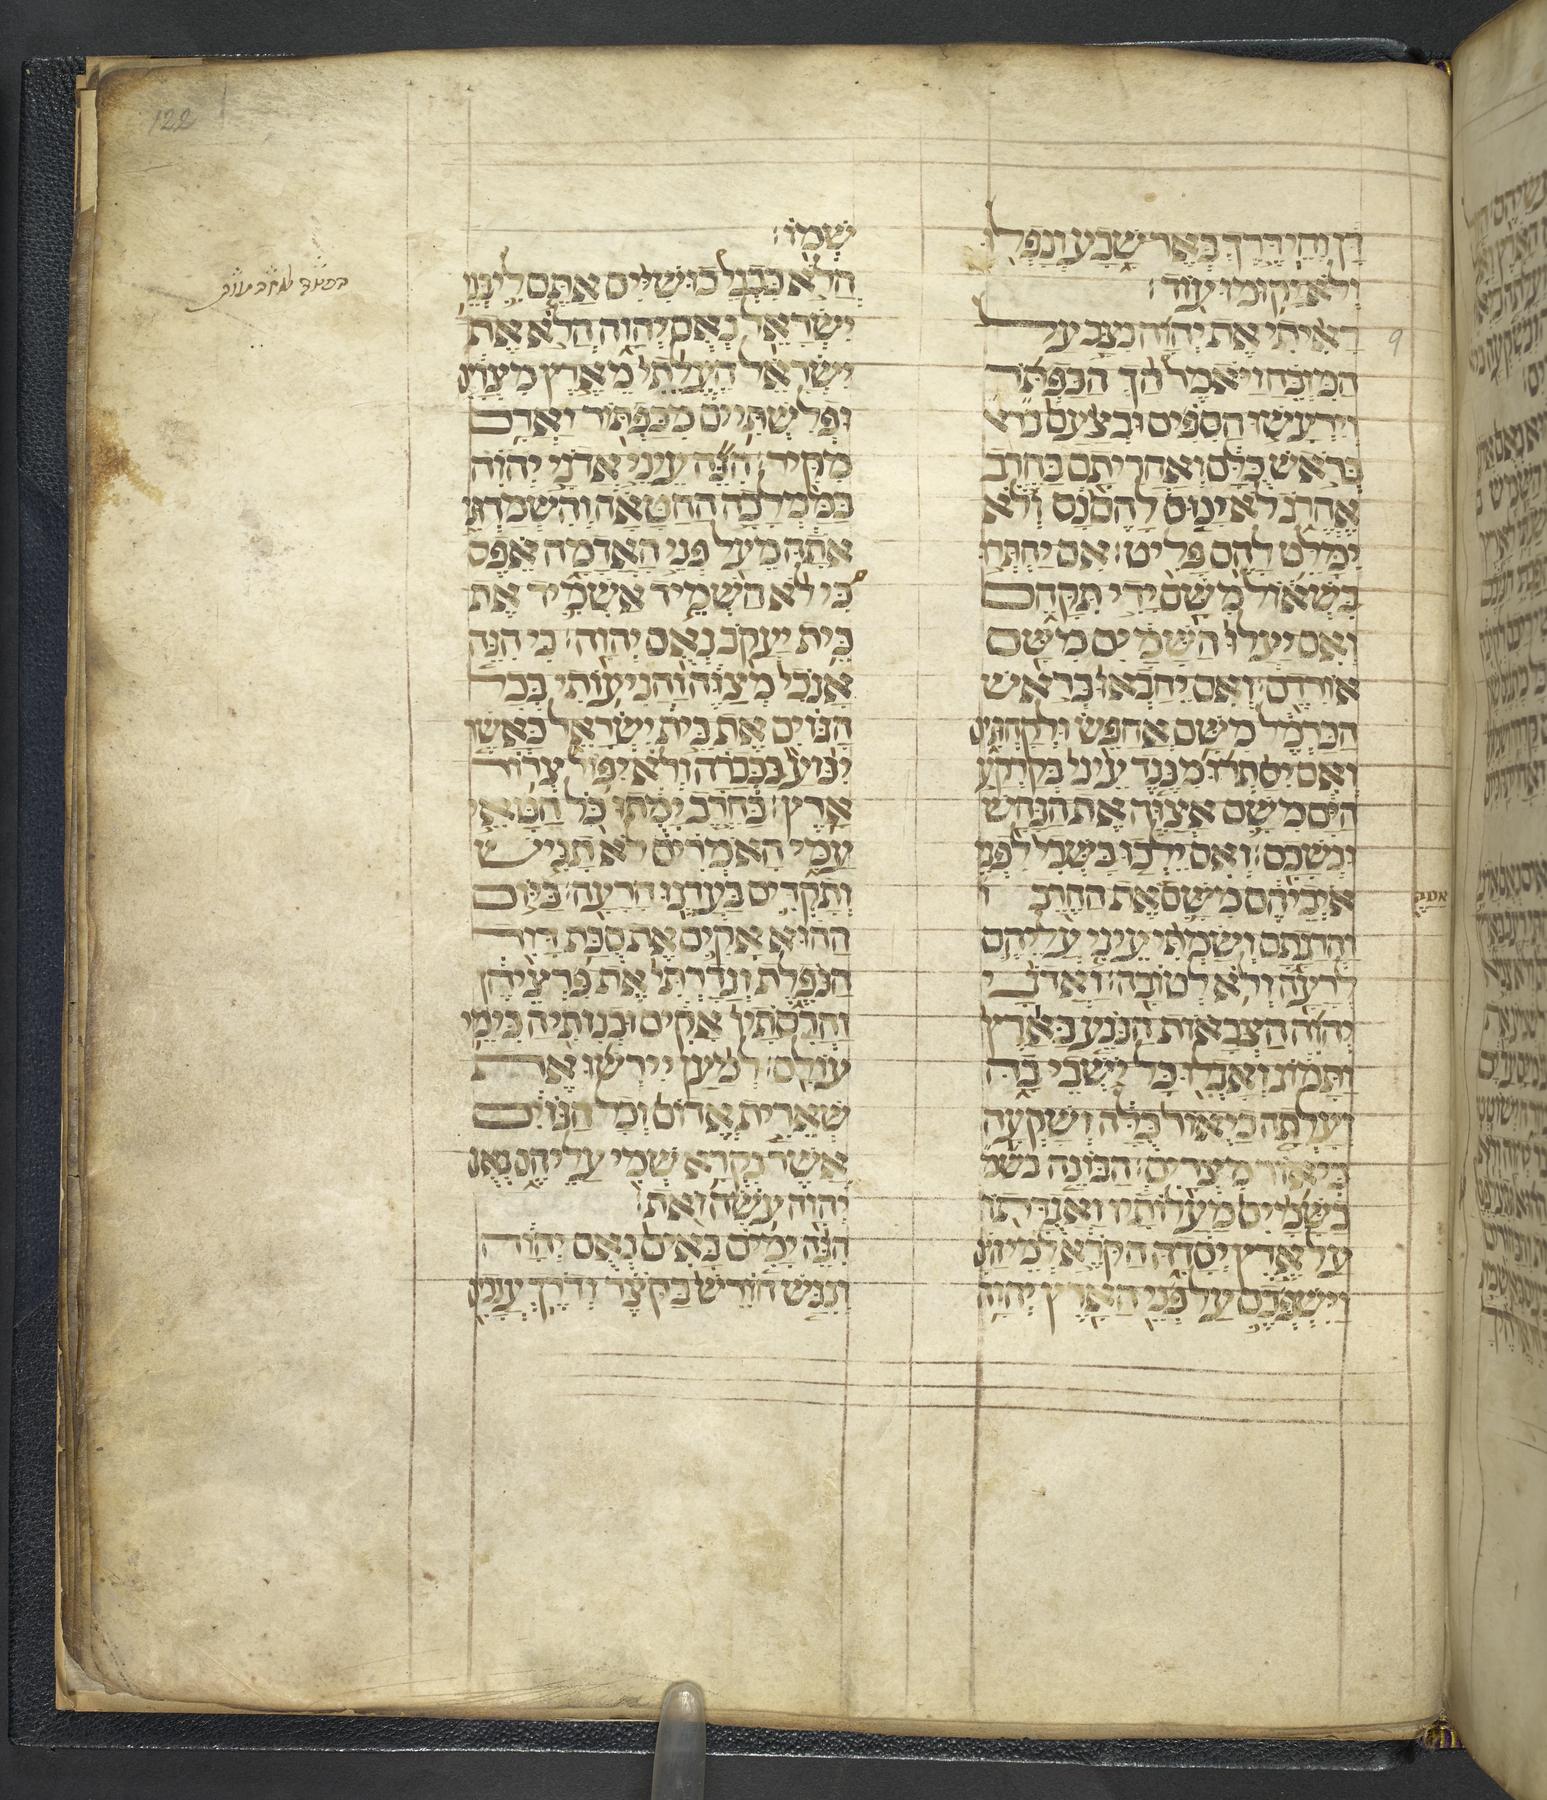 דן וחי דרך באר שבע ונפלו
ולא יקומו עוד׃
ראיתי את יהוה נצב על
המזבח ויאמר הך הכפתור
וירעשו הספים ובצעם
בראש כלם ואחריתם בחרב
אהרג לא ינוס להם נס ולא
ימלט להם פליט׃ אם יחתרו
בשאול משם ידי תקחם
ואם יעלו השמים משם
אורידם׃ ואם יחבאו בראש
הכרמל משם אחפש ולקחתים
ואם יסתרו מנגד עיני בקרקע
הים משם אצוה את הנחש
ונשכם׃ ואם ילכו בשבי לפני
איביהם משם את החרב
והרגתם ושמתי עיני עליהם
לרעה ולא לטובה׃ ואדני
יהוה הצבאות הנגע בארץ
ותמוג ואבלו כל יושבי בה
ועלתה כיאור כלה ושקעה
כיאור מצרים׃ הבונה
בשמים מעלותיו ואגדתו
על ארץ יסדה הקרא למי הים
וישפכם על פני הארץ יהוה
שמו׃
הלא כבני כושיים אתם לי בני
ישראל נאם יהוה הלא את
ישראל העליתי מארץ מצרים
ופלשתיים מכפתור וארם
מקיר׃ הנה עיני אדני יהוה
בממלכה החטאה והשמדתי
אתה מעל פני האדמה אפס
כי לא השמיד אשמיד את
בית יעקב נאם יהוה׃ כי הנה
אנכי מצוה והניעותי בכל
הגוים את בית ישראל כאשר
ינוע בכברה ולא יפול צרור
ארץ׃ בחרב ימתו כל חטאי
עמי האמרים לא תגיש
ותקדים בעדנו הרעה׃ ביום
ההוא אקים את סכת דויד
הנפלת וגדרתי את פרציהן
והרסתיו אקים ובניתיה כימי
עולם׃ למען יירשו את
שארית אדום וכל הגוים
אשר נקרא שמי עליהם נאם
יהוה עשה זאת׃
הנה ימים באים נאם יהוה
ונגש חורש בקצר ודרך ענבים
9
122